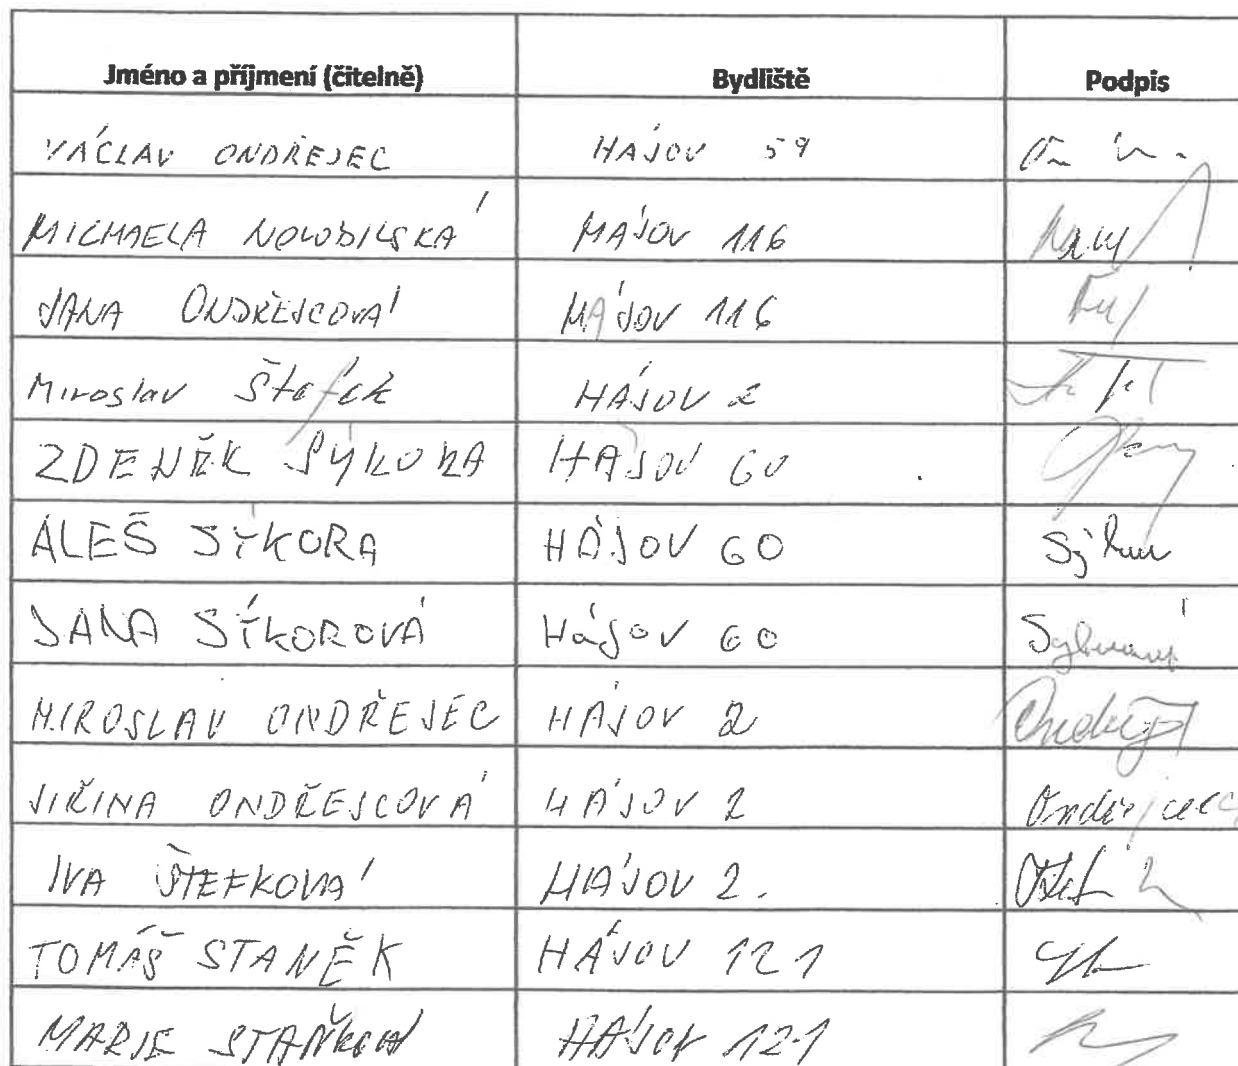 Jméno a příjmení (čitelně) Bydliště Podpis
VÁCLAV ONDŘEJEC HÁJOV 59
MICHAELA HÁJOV 116
JANA ONDŘEJCOVÁ HÁJOV 116
Miroslav Štefek HÁJOV 2
ZDENĚK SÝKORA HÁJOV 60
ALEŠ SÝKORA HÁJOV 60 Sýkora
JANA SÝKOROVÁ HájOV 60 Sýkorová
MIROSLAV ONDŘEJEC HÁJOV 2
JIŘINA ONDŘEJCOVÁ HÁJOV 2
IVA ŠTEFKOVÁ HÁJOV 2.
TOMÁŠ STANĚK HÁJOV 121
MARIE STAŇKOVÁ HÁJOV 121